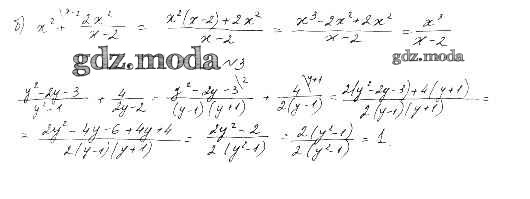 б) x² + \x-2 2x²/x-2 = x²(x-2)+2x²/x-2 = x³-2x²+2x²/x-2 = x³/x-2
gdz.moda
gdz.moda
№3
y²-2y-3/y²-1 + 4/2y-2 = y²-2y-3\2/(y-1)(y+1) + 4\y+1/2(y-1) = 2(y²-2y-3)+4(y+1)/2(y-1)(y+1) =
= 2y²-4y-6+4y+4/2(y-1)(y+1) = 2y²-2/2(y²-1) = 2(y²-1)/2(y²-1) = 1.